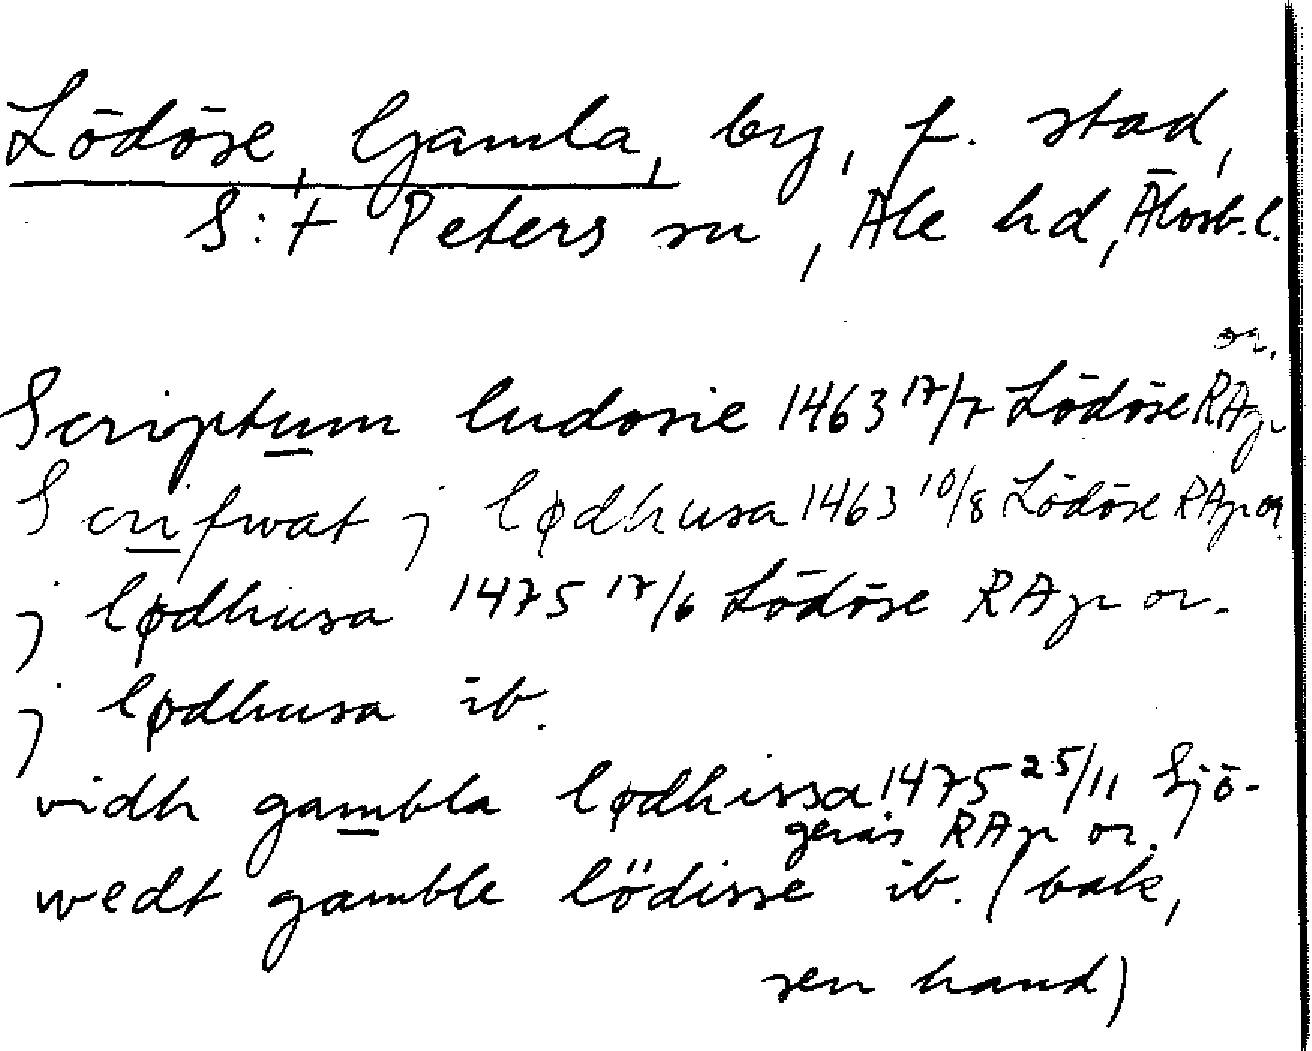 Lödöse, Gamla, by, f. stad,
S:t Peters sn, Ale hd, Älvsb. l.
Scriptum ludosie 1463 17/7 Lödöse RAp or.
Scrifwat j lødhusa 1463 10/8 Lödöse RAp or.
j lødhusa 1475 17/6 Lödöse RAp or.
j lødhusa ib.
vidh gambla lødhissa 1475 25/11 Sjö-
gerås RAp or.
wedt gamble lödisse ib. (bak,
sen hand)